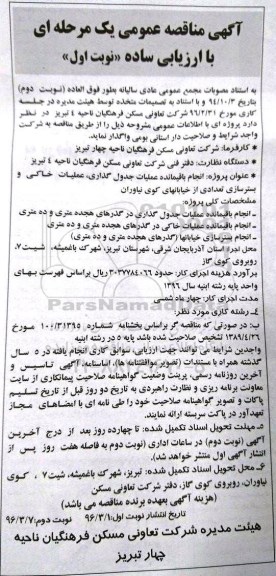 آگهی مناقصه عمومی یک مرحله ای
با ارزیابی ساده «نوبت اول»
به استناد مصوبات مجمع عمومی عادی سالیانه بطور فوق العاده (نوبت دوم)
بتاریخ ۹۴/۱۰/۳ و با استناد به تصمیمات متخذه توسط هیئت مدیره در جلسه
کاری مورخ ۹۶/۲/۳۱ شرکت تعاونی مسکن فرهنگیان ناحیه ۴ تبریز در نظر
دارد پروژه ای با اطلاعات عمومی مشروحه ذیل را از طریق مناقصه به شرکت
واجد شرایط و صلاحیت دار استانی بومی واگذار نماید.
* کارفرما: شرکت تعاونی مسکن فرهنگیان ناحیه چهار تبریز
* دستگاه نظارت: دفتر فنی شرکت تعاونی مسکن فرهنگیان ناحیه ٤ تبریز
* عنوان پروژه: انجام باقیمانده عملیات جدول گذاری، عملیات خاکی و
بسترسازی تعدادی از خیابانهای کوی نیاوران
مشخصات کلی پروژه:
ـ انجام باقیمانده عملیات جدول گذاری در گذرهای هجده متری و ده متری
ـ انجام باقیمانده عملیات خاکی در گذرهای هجده متری و ده متری
ـ انجام بسترسازی خیابانها (گذرهای هجده متری و ده متری)
محل اجرا: استان آذربایجان شرقی، شهرستان تبریز، شهرک باغمیشه، شیت ۷،
روبروی کوی گاز
برآورد هزینه اجرای کار: حدود ۳۰۳۷۷۸٤۰۶۶ ریال براساس فهرست بهای
واحد پایه رشته ابنیه سال ۱۳۹۶
مدت اجرای کار: چهار ماه شمسی
٤ـ رشته کاری مورد نظر:
ب: در صورتی که مناقصه گر براساس بخشنامه شماره ۱۰۰/۳۱۳۹۵ مورخ
۱۳۸۹/۴/۲۶ تشخیص صلاحیت شده باشد پایه ۵ در رشته ابنیه
واجدین شرایط می توانند جهت ارزیابی، سوابق کاری انجام یافته در ۵ سال
گذشته همراه با مستندات (تصویر موافقتنامه ها)، اساسنامه، آگهی تأسیس و
آخرین روزنامه رسمی، پرینت وضعیت گواهینامه صلاحیت پیمانکاری از سایت
معاونت برنامه ریزی و نظارت راهبردی به تاریخ دو روز قبل از تاریخ تسلیم
پاکات و تصویر گواهینامه صلاحیت خود را طی نامه ای با امضاهای مجاز
تعهدآور در پاکت سربسته ارائه نمایند.
ـ مهلت تحویل اسناد تکمیل شده: تا چهارده روز بعد از درج آخرین
آگهی (نوبت دوم) در ساعات اداری (نوبت دوم به فاصله هفت روز پس از
انتشار آگهی اول منتشر خواهد شد).
۶ـ محل تحویل اسناد تکمیل شده: تبریز، شهرک باغمیشه، شیت ۷، کوی
نیاوران، روبروی کوی گاز، دفتر شرکت تعاونی مسکن
(هزینه آگهی بعهده برنده مناقصه می باشد)
تاریخ انتشار نوبت اول: ۹۶/۳/۱ نوبت دوم: ۹۶/۳/۷
هیئت مدیره شرکت تعاونی مسکن فرهنگیان ناحیه
چهار تبریز
ParsNamadData